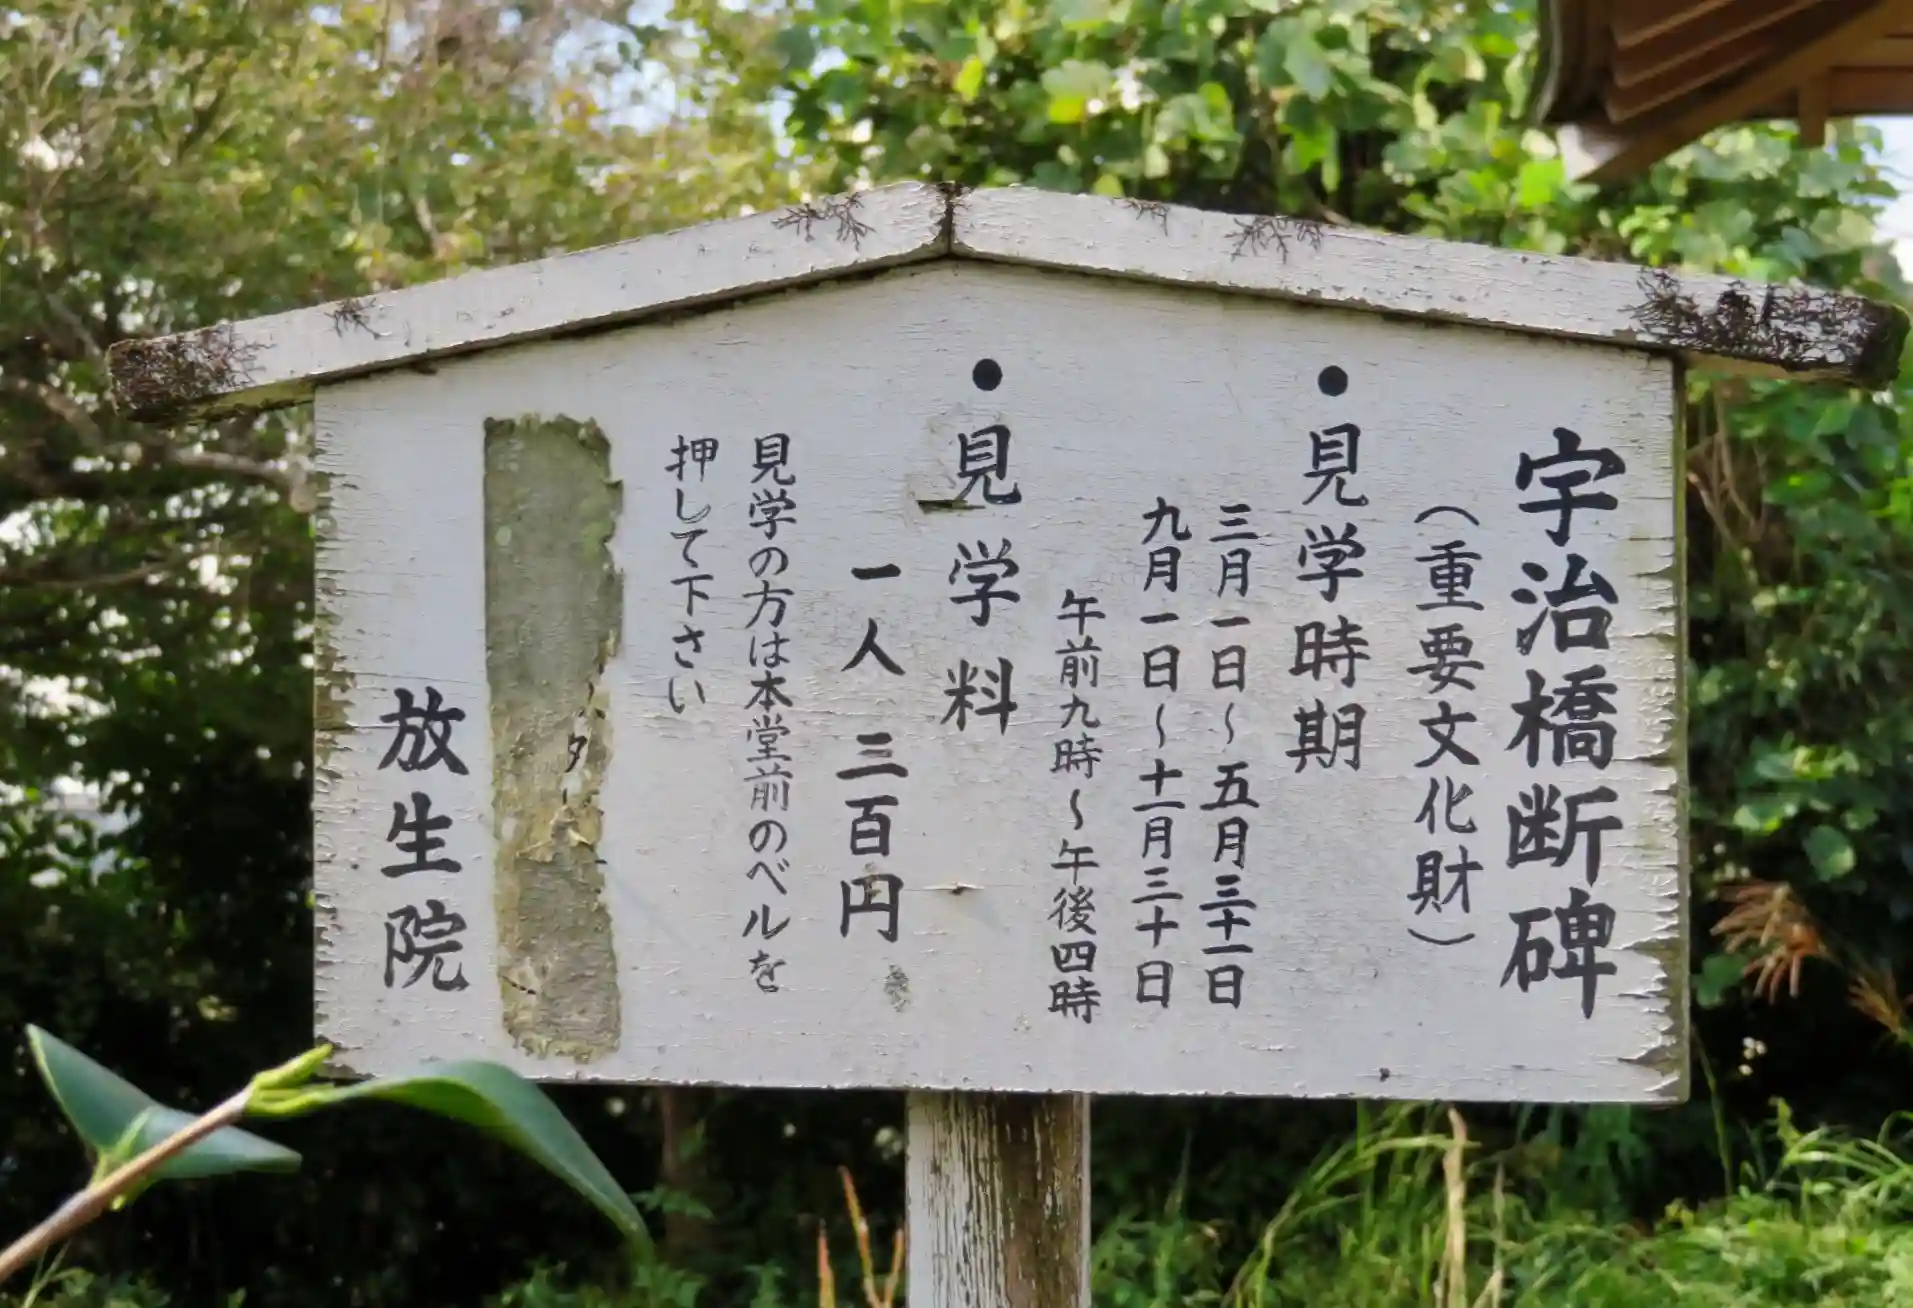 宇治橋断碑
（重要文化財）
・見学時期
三月一日～五月三十一日
九月一日～十一月三十日
午前九時～午後四時
・見学料
一人 三百円
見学の方は本堂前のベルを
押して下さい
放生院